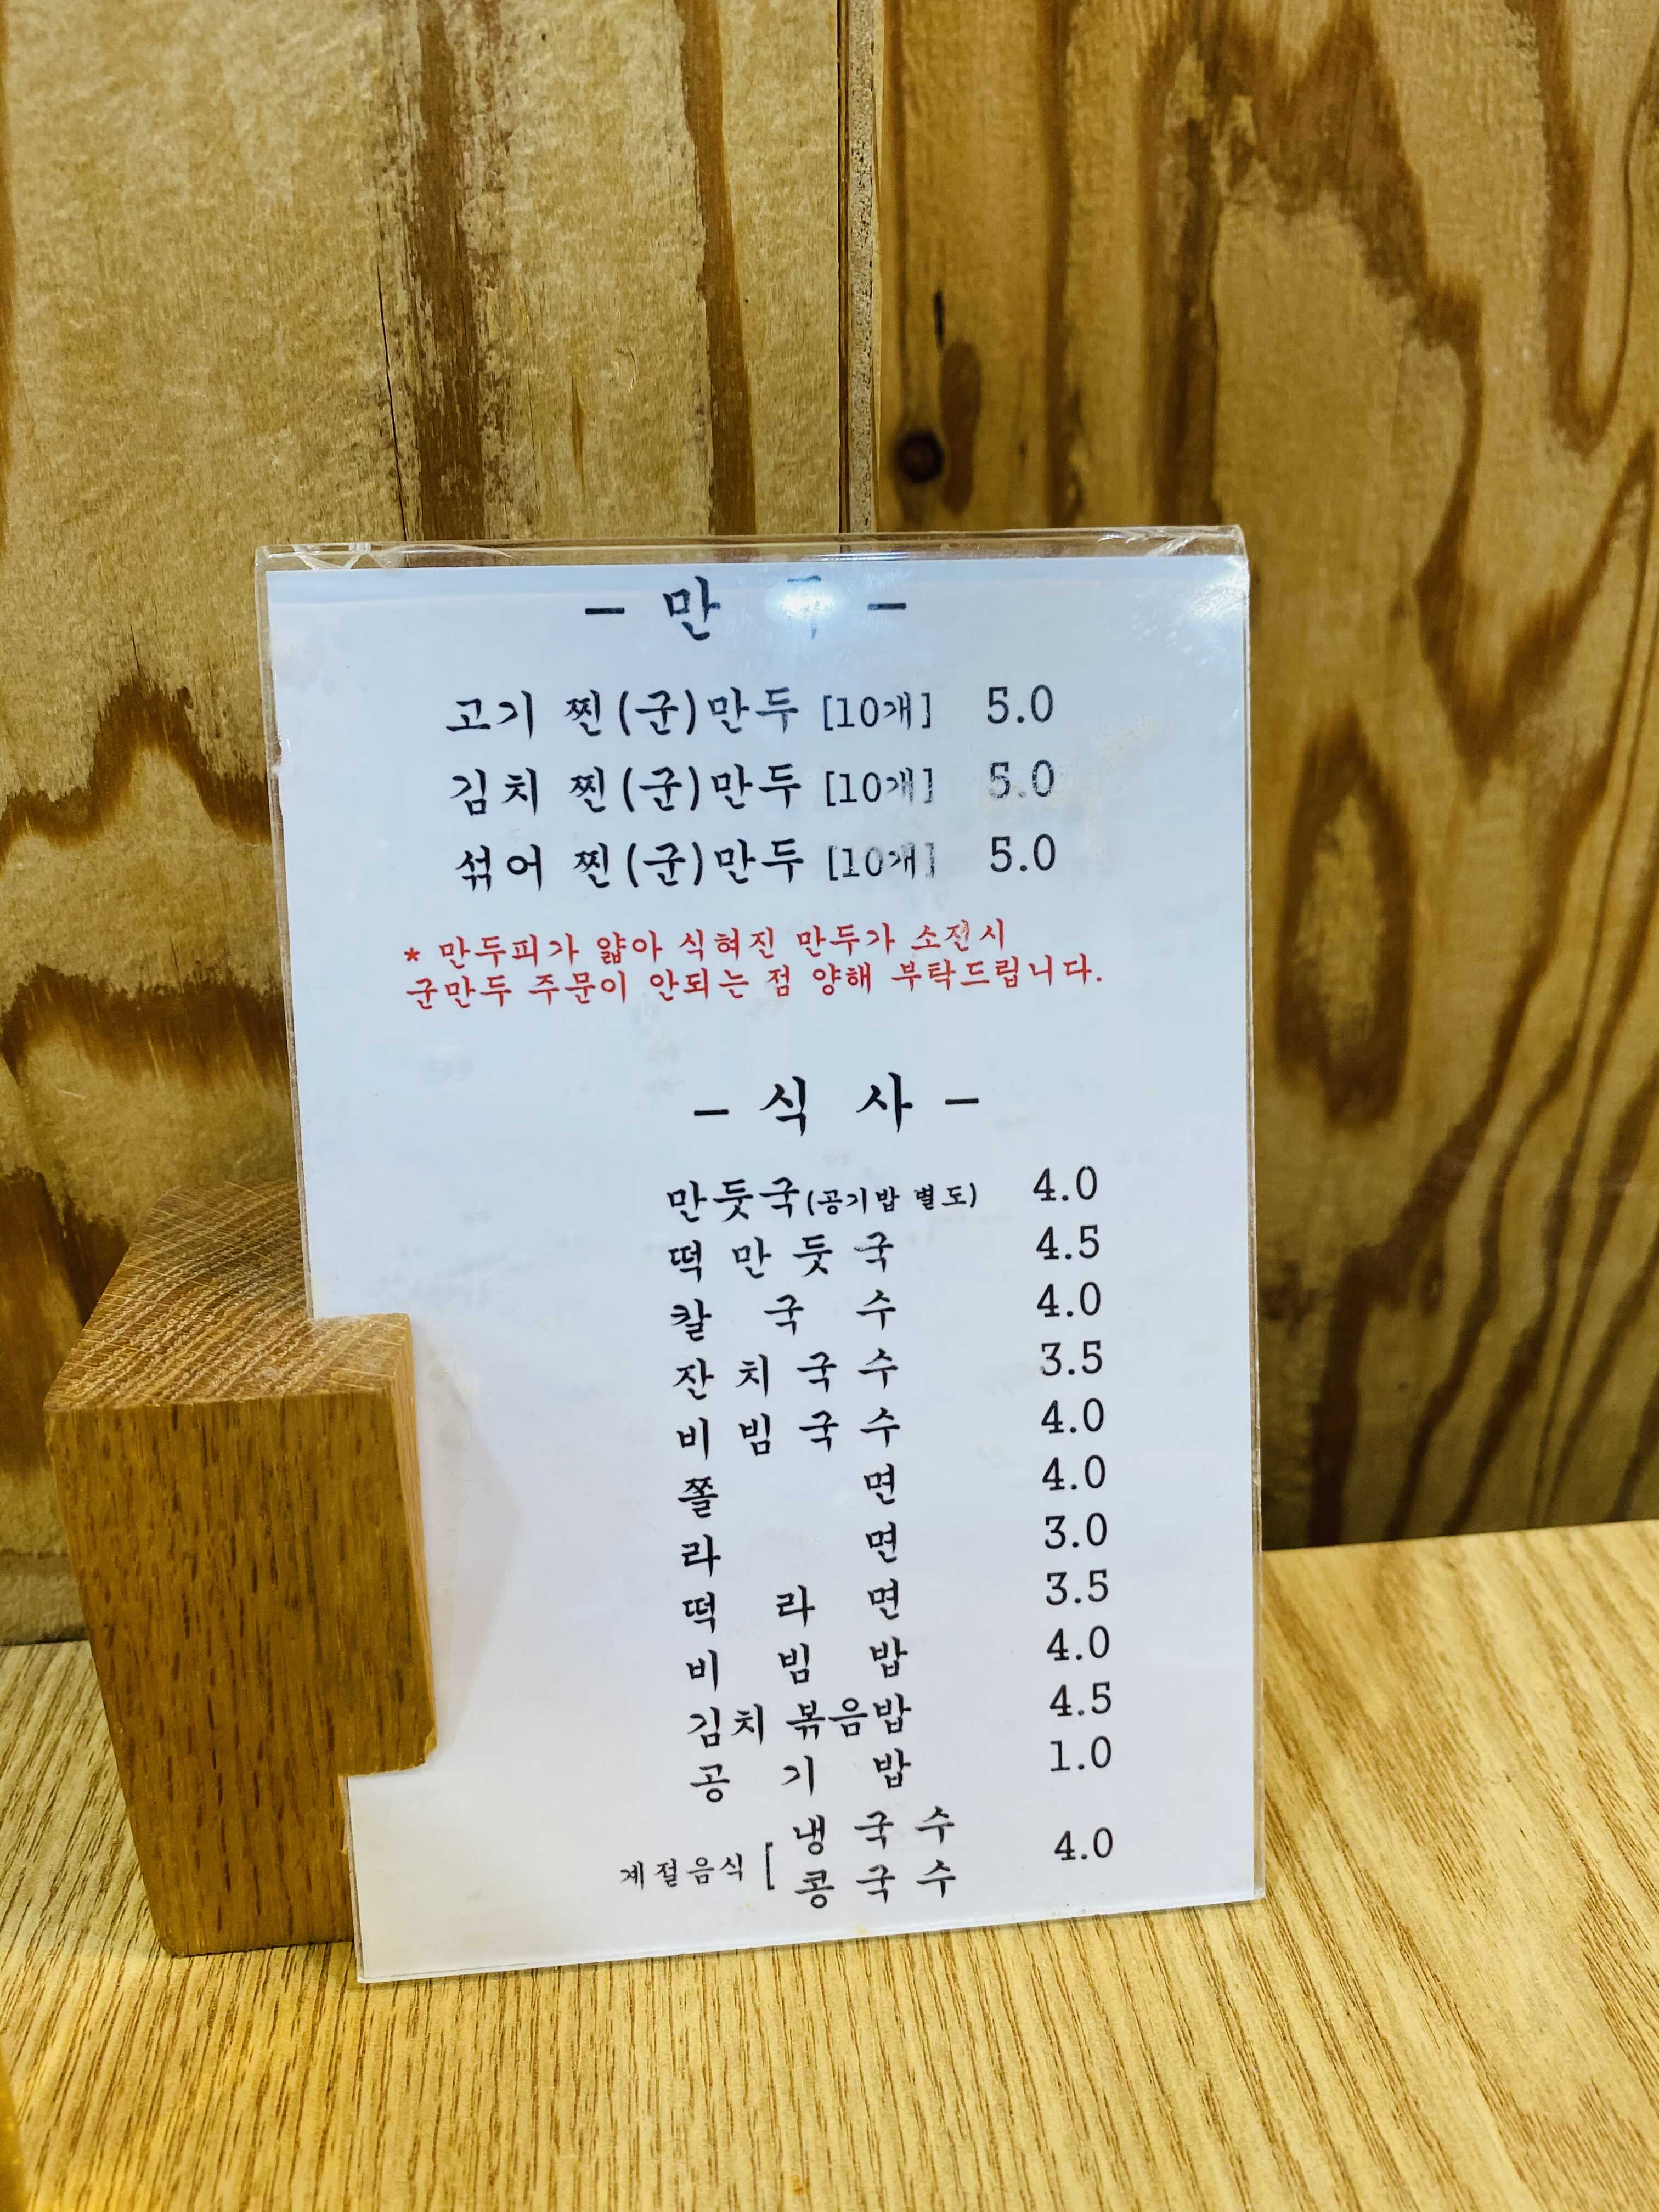 - 만 두 -
고기 찐(군)만두 [10개] 5.0
김치 찐(군)만두 [10개] 5.0
섞어 찐(군)만두 [10개] 5.0
* 만두피가 얇아 식혀진 만두가 소진시
군만두 주문이 안되는 점 양해 부탁드립니다.
- 식 사 -
만둣국(공기밥 별도) 4.0
떡 만 둣 국 4.5
칼 국 수 4.0
잔 치 국 수 3.5
비 빔 국 수 4.0
쫄 면 4.0
라 면 3.0
떡 라 면 3.5
비 빔 밥 4.0
김치 볶음밥 4.5
공 기 밥 1.0
계절음식 [ 냉 국 수 4.0
콩 국 수